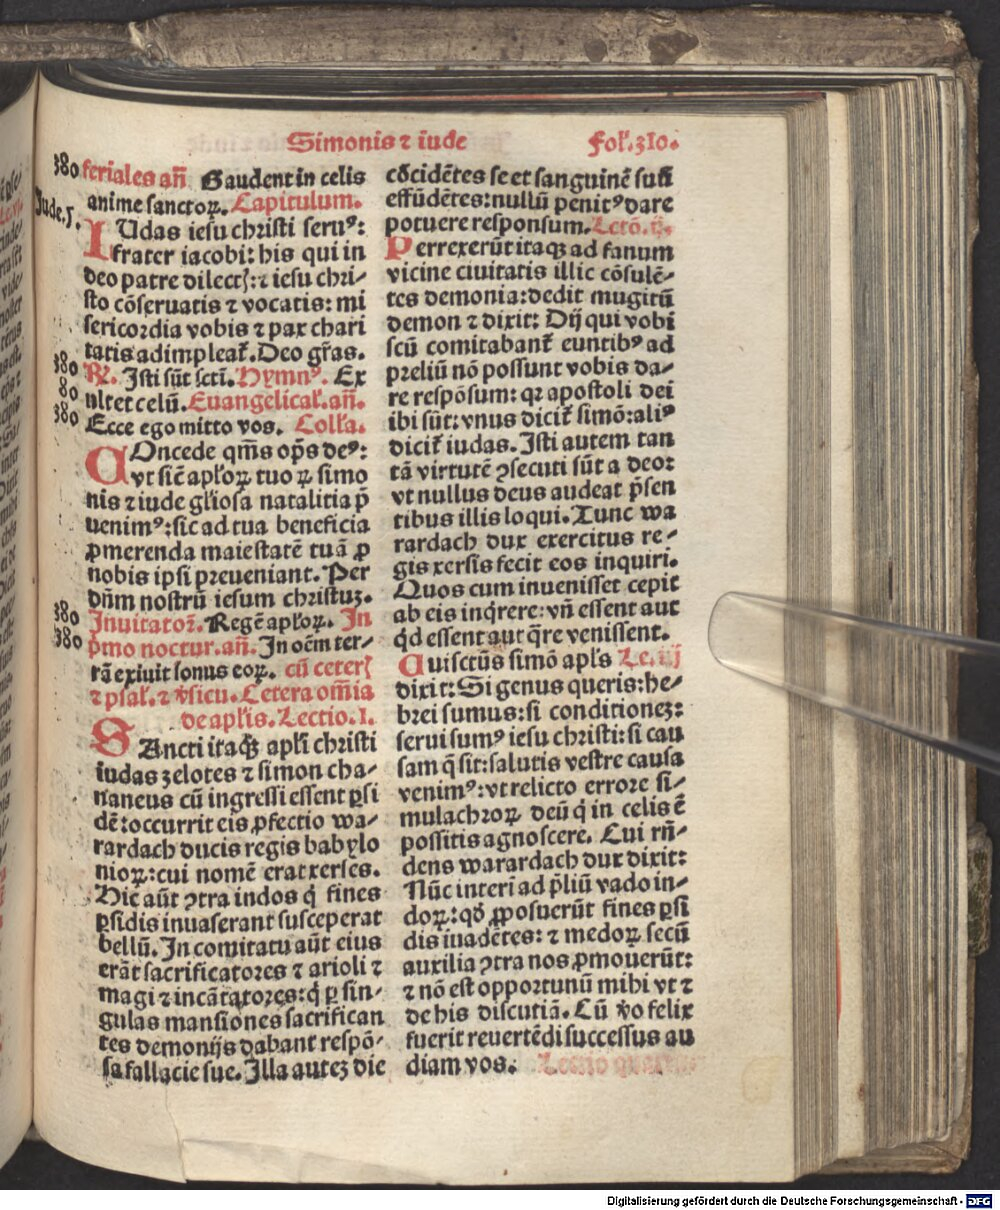 Simonis ⁊ iude
Fol̕. 310.
380 feriales añ Gaudent in celis
anime sanctoꝝ. Capitulum.
Jude.5.
IUdas iesu christi seruꝰ:
frater iacobi: his qui in
deo patre dilectꝭ: ⁊ iesu chri-
sto cōseruatis ⁊ vocatis: mi
sericordia vobis ⁊ pax chari
tatis adimpleat̃. Deo gr̃as.
380 R̷. Isti sūt sctī. Hymnꝰ. Ex
80 ultet celū. Euangelical̕. añ.
380 Ecce ego mitto vos. Coll̕a.
COncede qm̄s op̄s deꝰ:
vt sic̄ apl̕oꝝ tuoꝝ simo
nis ⁊ iude gl̕iosa natalitia p̄
uenimꝰ: sic ad tua beneficia
ꝓmerenda maiestatē tuā ꝓ
nobis ipsi preueniant. Per
dn̄m nostrū iesum christuꝫ.
380 Inuitatoꝛ. Regē apl̕oꝝ. In
380 pmo noctur. añ. In oēm ter-
rā exiuit sonus eoꝝ. cū ceterꝭ
⁊ psal̕. ⁊ v̕sicu. Cetera om̄ia
de apl̕is. Lectio. I.
SAncti itaqꝫ apl̕i christi
iudas zelotes ⁊ simon cha-
naneus cū ingressi essent ꝑsi
dē: occurrit eis ꝓfectio wa-
rardach ducis regis babylo
nioꝝ: cui nomē erat xerses.
Hic aūt ꝯtra indos q̇ fines
ꝑsidis inuaserant susceperat
bellū. In comitatu aūt eius
erāt sacrificatores ⁊ arioli ⁊
magi ⁊ incātatores: q̇ ꝑ sin-
gulas mansiones sacrifican
tes demonijs dabant respō-
sa fallacie sue. Illa auteꝫ die
cōcidētes se et sanguinē suū
effūdētes: nullū penitꝰ dare
potuere responsum. Lctō. ij.
Perrexerūt itaqꝫ ad fanum
vicine ciuitatis illic cōsulē-
tes demonia: dedit mugitū
demon ⁊ dixit: Dij qui vobi
scū comitabant̃ euntibꝰ ad
preliū nō possunt vobis da-
re respōsum: qꝛ apostoli dei
ibi sūt: vnus dicit̃ simō: aliꝰ
dicit̃ iudas. Isti autem tan
tā virtutē ꝯsecuti sūt a deo:
vt nullus deus audeat p̄sen
tibus illis loqui. Tunc wa
rardach dux exercitus re-
gis xersis fecit eos inquiri.
Quos cum inuenisset cepit
ab eis inq̇rere: vñ essent aut
q̇d essent aut q̄re venissent.
Cui sctūs simō apl̕s Le. iij
dixit: Si genus queris: he-
brei sumus: si conditioneꝫ:
serui sumꝰ iesu christi: si cau
sam q̄ sit: salutis vestre causa
venimꝰ: vt relicto errore si-
mulachroꝝ deū q̇ in celis ē
possitis agnoscere. Cui rñ-
dens warardach dux dixit:
Nūc interi ad p̄liū vado in-
doꝝ: qđ ꝓposuerūt fines ꝑsi
dis iuadētes: ⁊ medoꝝ secū
auxilia ꝯtra nos ꝓmouerūt:
⁊ nō est opportunū mihi vt ⁊
de his discutiā. Cū v̊o felix
fuerit reuertēdi successus au
diam vos. Lectio quarta
Digitalisierung gefördert durch die Deutsche Forschungsgemeinschaft - DFG